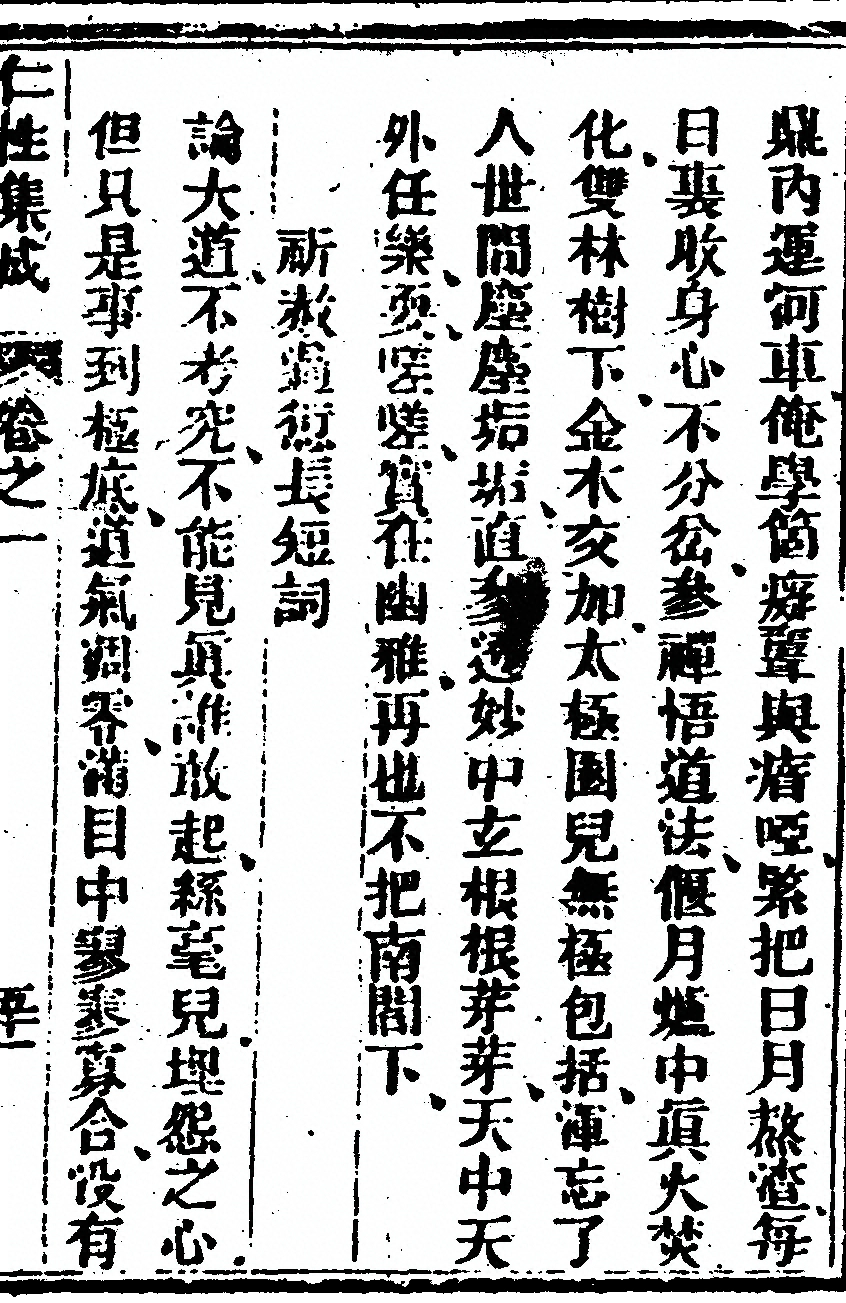 鼎內運河車俺學箇癡聾與瘖啞緊把日月熬渣每
日裏收身心不分岔參禪悟道法偃月爐中眞火焚
化雙林樹下金木交加太極圈兒無極包括渾忘了
人世間塵塵垢垢直參透妙中玄根根芽芽天中天
外任樂耍嗟嗟實在幽雅再也不把南閻下
祈赦過愆長短詞
論大道不考究不能見眞誰敢起絲毫兒埋怨之心
但只是事到極底道氣凋零滿目中寥寥寡合沒有
仁性集成 卷之一